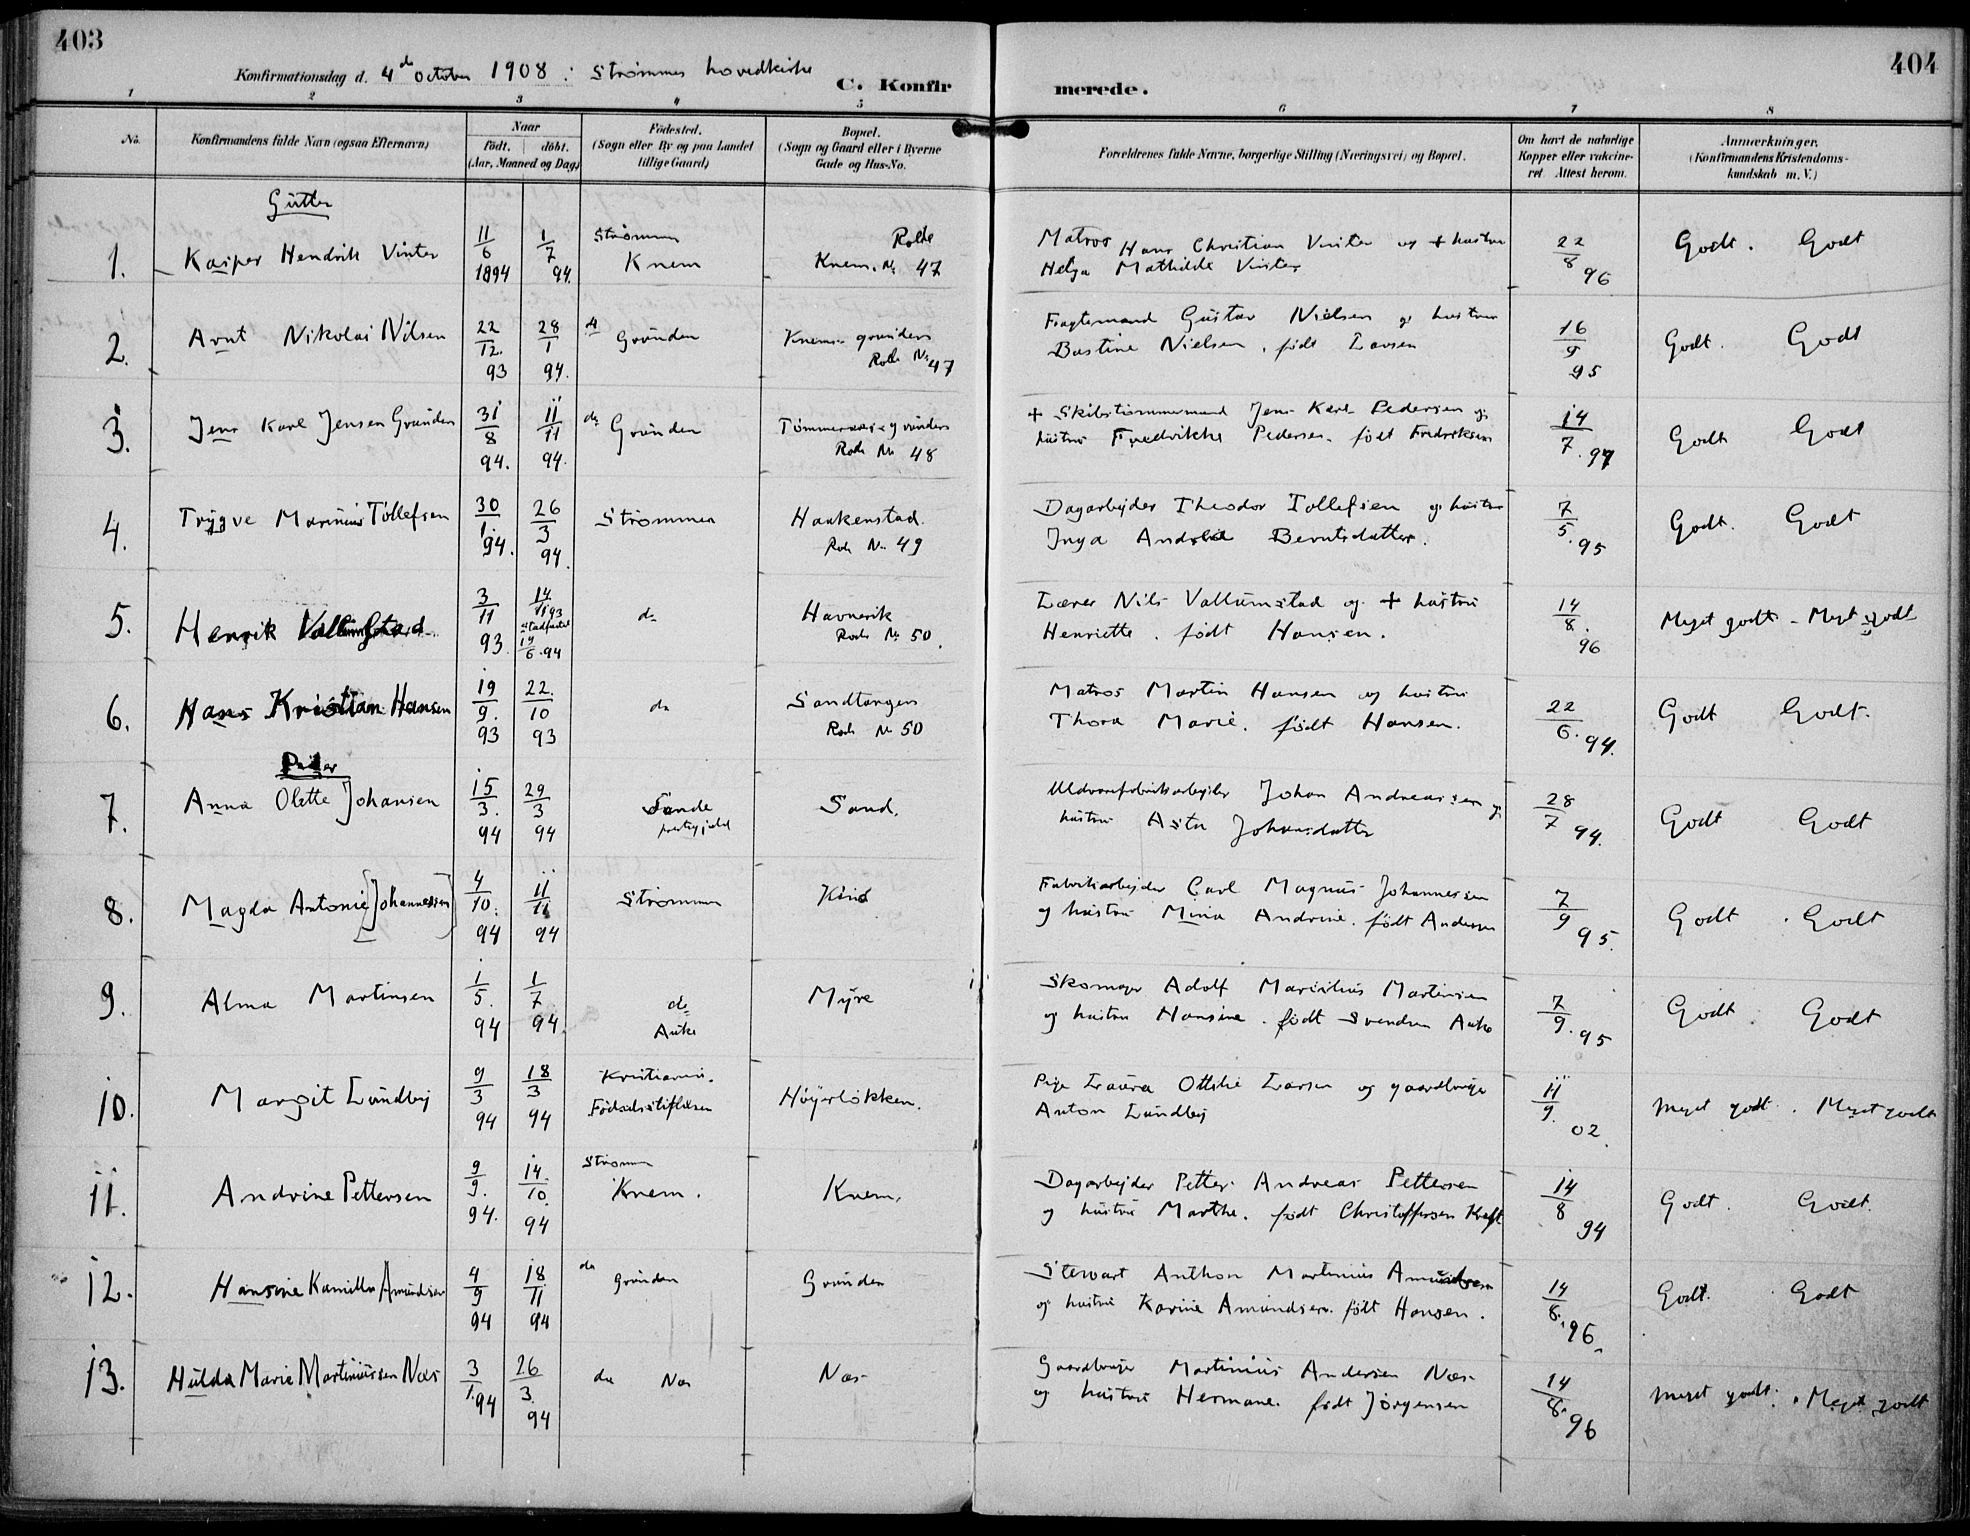 403
404
Konfirmationsdag d. 4de October 1908 i Strømmens hovedkirke
C. Konfirmerede.
1 2 3 4 5 6 7 8
No.
Konfirmandens fulde Navn (ogsaa Efternavn)
Naar
født. døbt.
(Aar, Maaned og Dag)
Fødested.
(Sogn eller By og paa Landet
tillige Gaard)
Bopæl.
(Sogn og Gaard eller i Byerne
Gade og Hus-No.
Forældrenes fulde Navne, borgerlige Stilling (Næringsvei) og Bopæl.
Om havt de naturlige
Kopper eller vakcine-
ret Attest herom.
Anmærkninger.
(Konfirmandens Kristendoms-
kundskab m. V.)
Gutter
1. Kasper Hendrik Vinter 11/6 1894 1/7 94. Strømmen Knem Knem. No 47 Rode
Matros Hans Christian Vinter og + hustru
Helga Mathilde Vinter
22/8 96 Godt. Godt
2. Arnt Nikolai Nilsen 22/12. 93 28/1 94. Grunden Knems grunden Rode No 47
Fragtemand Gustav Nielsen og hustru
Bastine Nielsen, født Larsen
16/9 95 Godt. Godt
3. Jens Karl Jensen Grunden 31/8 94. 11/11 94. do Grunden Tømmeraas grunden Rode No 48
+ Skibstømmermand Jens Karl Pedersen og
hustru Fredrikke Pedersen. født Fredriksen
14/7. 97 Godt Godt
4. Trygve Marinius Tollefsen 30/1. 94. 26/3 94. Strømmen Haukenstad. Rode No 49
Dagarbejder Theodor Tollefsen og hustru
Inga Andrea Berntsdatter.
7/5. 95 Godt. Godt
5. Henrik Vallumstad 3/11 93. 14/11 93 stadfæstet 19/6.94 do Havnevik Rode No 50.
Lærer Nils Vallumstad og + hustru
Henriette. født Hansen.
14/8. 96 Meget godt. Meget godt
6. Hans Kristian Hansen 19/9. 93 22./10 93 do Sandtangen Rode No 50
Matros Martin Hansen og hustru
Thora Marie. født Hansen.
22/6. 94. Godt Godt.
Piker
7. Anna Olette Johansen 15/3. 94 29/3 94 Sande prestegjeld Sand.
Uldvarefabrikarbejder Johan Andreassen og
hustru Asta Johansdatter
28/7 94. Godt Godt
8. Magda Antonie [Johannessen] 4/10. 94 11/11 94 Strømmen
Fabrikarbejder Carl Magnus Johannessen
og hustru Mina Andrine. født Andersen
7/9 95. Godt. Godt
9. Alma Martinsen 1/5. 94 1/7 94. do Auke Myre
Skomager Adolf Martinsen
og hustru Hansine. født Svendsen Auke
7/9. 95 Godt. Godt
10. Margit Lundby 9/3 94 18/3 94 Kristiania. Fødselsstiftelsen Høyerløkken.
Pige Laura Ottilie Larsen og gaardbruger
Anton Lundby
11/9. 02. Meget godt. Meget godt
11. Andrine Pettersen 9/9. 94. 14./10 94 Strømm Knem. Knem.
Dagarbejder Petter Andreas Pettersen
og hustru Marthe. født Christoffersen Kraft
14/8 94 Godt. Godt.
12. Hansine Kamilla Amundsen 4/9 94 18/11 94 do Grunden Grunden
Stewart Anthon Martinius Amundsen
og hustru Karine Amundsen. født Hansen.
14/8. 96. Godt. Godt
13. Hulda Marie Martiniussen Næs 3/1. 94 26/3. 94 do Næs Næs
Gaardbruger Martinius Andersen Næs
og hustru Hermane. født Jørgensen
14/8. 96 Meget godt. Meget godt